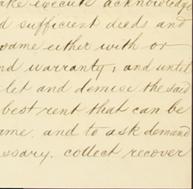 make execute acknowledge
d sufficient deeds and
same either with or
nd warranty, and until
let and demise the said
best rent that can be
ame, and to ask demand
essary, collect recover